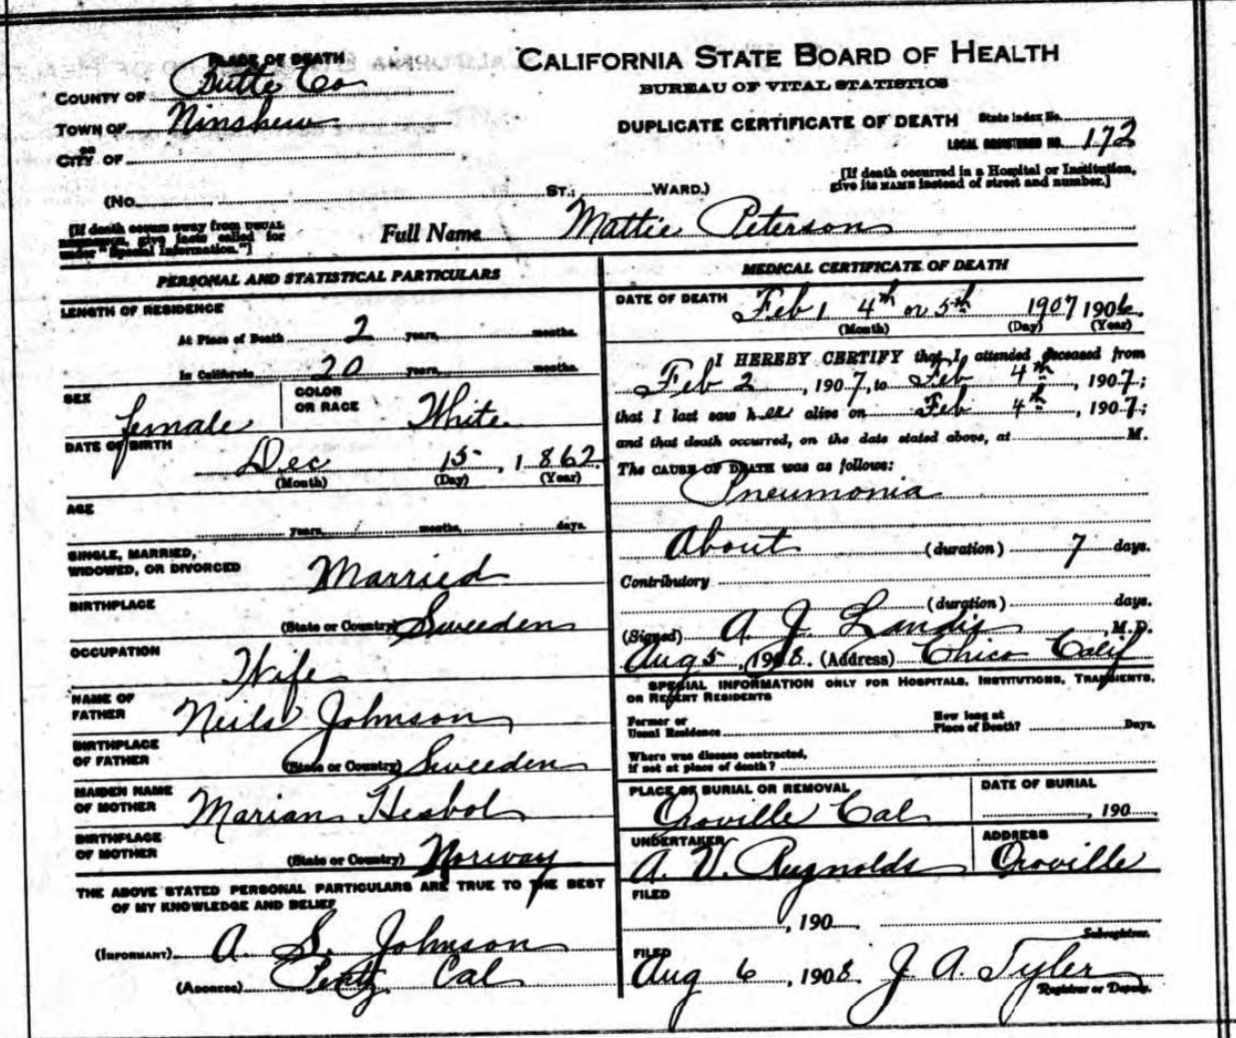 PLACE OF DEATH
CALIFORNIA STATE BOARD OF HEALTH
BUREAU OF VITAL STATISTICS
COUNTY OF Butte Co
TOWN OF Ninshew
OR
CITY OF
DUPLICATE CERTIFICATE OF DEATH State Index No.
LOCAL REGISTERED NO. 172
(No. , ST.; WARD.)
[If death occurred in a Hospital or Institution, give its NAME instead of street and number.]
[If death occurs away from USUAL RESIDENCE, give facts called for under "Special Information."]
Full Name Mattie Peterson
PERSONAL AND STATISTICAL PARTICULARS
LENGTH OF RESIDENCE
At Place of Death 2 years, months.
In California 20 years, months.
SEX female
COLOR OR RACE White
DATE OF BIRTH
Dec 15 , 1 862
(Month) (Day) (Year)
AGE
years, months, days.
SINGLE, MARRIED,
WIDOWED, OR DIVORCED Married
BIRTHPLACE
(State or Country) Sweeden
OCCUPATION
Wife
NAME OF
FATHER Neils Johnson
BIRTHPLACE
OF FATHER (State or Country) Sweeden
MAIDEN NAME
OF MOTHER Marian Hesbol
BIRTHPLACE
OF MOTHER (State or Country) Norway
THE ABOVE STATED PERSONAL PARTICULARS ARE TRUE TO THE BEST
OF MY KNOWLEDGE AND BELIEF
(INFORMANT) A. S. Johnson
(ADDRESS) Pentz Cal
MEDICAL CERTIFICATE OF DEATH
DATE OF DEATH
Feb 4th or 5th 1907 190
(Month) (Day) (Year)
I HEREBY CERTIFY that I attended deceased from
Feb 2 , 1907, to Feb 4th , 1907;
that I last saw her alive on Feb 4th , 1907;
and that death occurred, on the date stated above, at M.
The CAUSE OF DEATH was as follows:
Pneumonia
About (duration) 7 days.
Contributory
(duration) days.
(Signed) A. J. Landis , M.D.
Aug 5 , 1908. (Address) Chico Calif
SPECIAL INFORMATION ONLY FOR HOSPITALS, INSTITUTIONS, TRANSIENTS,
OR RECENT RESIDENTS
Former or
Usual Residence
How long at
Place of Death? Days.
Where was disease contracted,
if not at place of death?
PLACE OF BURIAL OR REMOVAL
Oroville Cal
DATE OF BURIAL
, 190
UNDERTAKER
A. V. Reynolds
ADDRESS
Oroville
FILED
, 190
Subregistrar.
FILED
Aug 6 , 1908. J. A. Tyler
Registrar or Deputy.